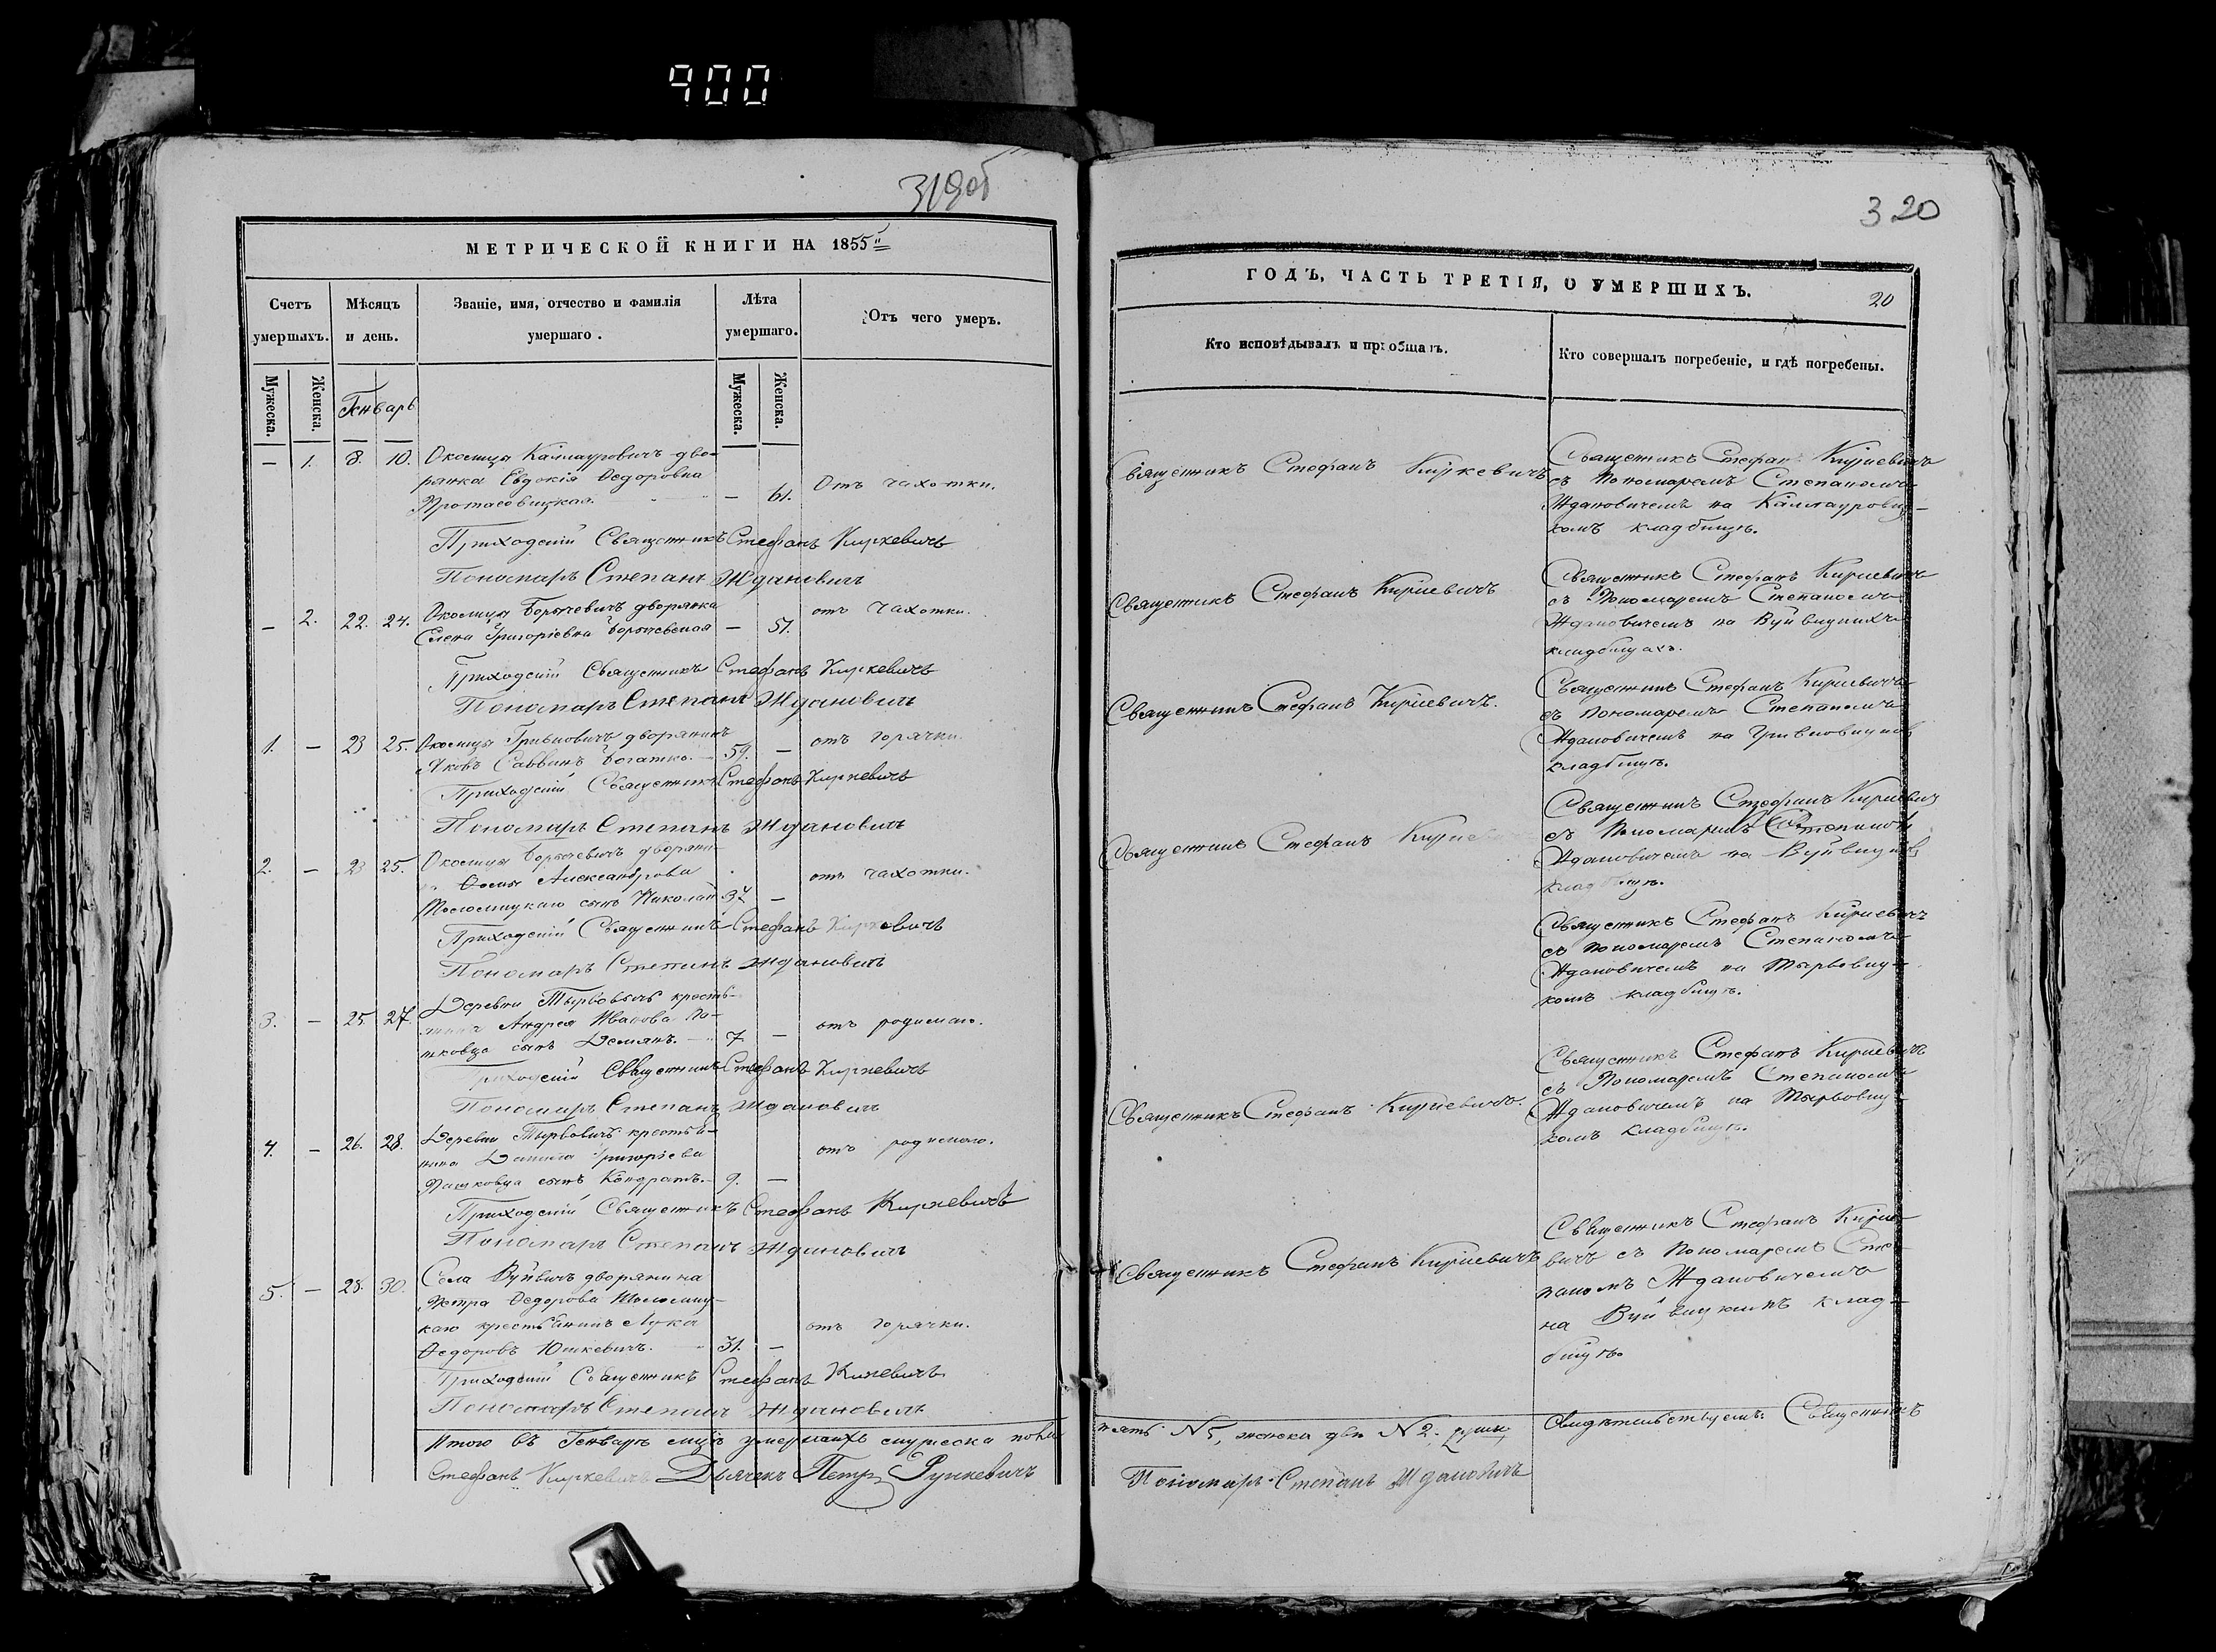 900
319об
МЕТРИЧЕСКОЙ КНИГИ НА 1855й
Счетъ умершихъ.
Мѣсяцъ и день.
Званіе, имя, отчество и фамилія умершаго.
Лѣта умершаго.
Отъ чего умеръ.
Мужеска.
Женска.
Генварь
Мужеска.
Женска.
— 1. 8. 10. Околицы Каллауровичъ дво-
рянка Евдокія Ѳедоровна
Протасовицкая. — 61. Отъ чахотки.
Приходскій Священникъ Стефанъ Киркевичъ
Пономаръ Степанъ Ждановичъ
— 2. 22. 24. Околицы Борычевичъ дворянка
Елена Григоріевна Борычевская — 51. отъ чахотки.
Приходскій Священникъ Стефанъ Киркевичъ
Пономаръ Степанъ Ждановичъ
1. — 23 25. Околицы Гривковичъ дворянинъ
Яковъ Саввинъ Богатко. 59. — отъ горячки.
Приходскій Священникъ Стефанъ Киркевичъ
Пономаръ Степанъ Ждановичъ
2. — 23 25. Околицы Борычевичъ дворяни-
Осипа Александрова
сынъ Николай 37 — отъ чахотки.
Приходскій Священникъ Стефанъ Киркевичъ
Пономаръ Степанъ Ждановичъ
3. — 25. 27. Деревни Тырвовичъ кресть-
Андрея Иванова Па-
шковца сынъ Демянъ. 7 — отъ родимаго.
Приходскій Священникъ Стефанъ Киркевичъ
Пономаръ Степанъ Ждановичъ
4. — 26. 28. Деревни Тырвовичъ крестья-
нина Данила Григоріева
Пашковца сынъ Кондратъ. 9. — отъ родимаго.
Приходскій Священникъ Стефанъ Киркевичъ
Пономаръ Степанъ Ждановичъ
5. — 28. 30. Села Вуйвичъ дворянина
Петра Ѳедорова
каго крестьянинъ Лука
Ѳедоровъ Юшкевичъ. 31. — отъ горячки.
Приходскій Священникъ Стефанъ Киркевичъ
Пономаръ Степанъ Ждановичъ
Итого въ Генварѣ умершихъ мужеска пола
Стефанъ Киркевичъ Дьячекъ Петр Рункевичъ
320
ГОДЪ, ЧАСТЬ ТРЕТІЯ, О УМЕРШИХЪ.
20
Кто исповѣдывалъ и пріобщалъ.
Кто совершалъ погребеніе, и гдѣ погребены.
Священникъ Стефанъ Киркевичъ
Священникъ Стефанъ Киркевичъ
съ Пономаремъ Степаномъ
Ждановичемъ на Каллаурович-
комъ кладбищѣ.
Священникъ Стефанъ Киркевичъ
Священникъ Стефанъ Киркевичъ
съ Пономаремъ Степаномъ
Ждановичемъ на Вуйвицкихъ
кладбищахъ.
Священникъ Стефанъ Киркевичъ.
Священникъ Стефанъ Киркевичъ
съ пономаремъ Степаномъ
Ждановичемъ на
кладбищѣ.
Священникъ Стефанъ
Священникъ Стефанъ Киркевич
съ Пономаремъ Степаномъ
Ждановичемъ на
кладбищѣ.
Священникъ Стефанъ Киркевичъ
съ пономаремъ Степаномъ
Ждановичемъ на Тырвовиц-
комъ кладбищѣ.
Священникъ Стефанъ Киркевичъ.
Священникъ Стефанъ Киркевичъ
съ Пономаремъ Степаномъ
Ждановичемъ на Тырвовиц-
комъ кладбищѣ.
Священникъ Стефанъ Киркевичъ
Священникъ Стефанъ Кирке-
вичъ съ Пономаремъ Сте-
паномъ Ждановичемъ
на Вуйвицкомъ клад-
бищѣ.
пять № 5, женска двѣ № 2. душы
Свидѣтельствуемъ: Священникъ
Пономаръ Степанъ Ждановичъ